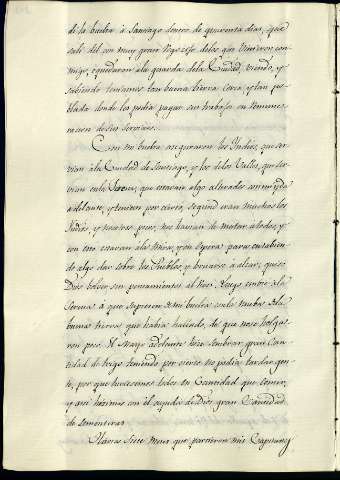 de la buelta á Santiago dentro de quarenta dias, que
salí dél con muy gran regocijo delos que vinieron con-
migo, y quedaron á la guarda dela Ciudad, viendo, y
sabiendo teniamos tan buena tierra cerca, y tan po-
blada donde les podia pagar sus trabajos en remune-
racion de sus servicios.
Con mi buelta aseguraron los Indios, que ser-
vian á la Ciudad de Santiago, y los delos Valles, que ser-
vian en la Serena, que estavan algo alterados con mi yda
adelante, y tenian por cierto, segund eran muchos los
Indios, y nosotros pocos, nos havian de matar á todos, y
con esto estavan á la mira, y en espera para en sabien-
do algo dar sobre los Pueblos, y tornarse á alzar; quiso
Dios bolver sus pensamientos al rev. Luego embié á la
Serena á que supiesen de mi buelta con la nueba dela
buena tierra que havia hallado, de que no se holga-
ron poco. El Mayo adelante hize sembrar gran Can-
tidad de trigo teniendo por cierto no podia tardar gen-
te, por que tuviesemos todos en Cantidad que comer,
y así hizimos con el ayuda de Dios gran Cantidad
de sementeras.
Havia siete meses que partieron mis Capitanes